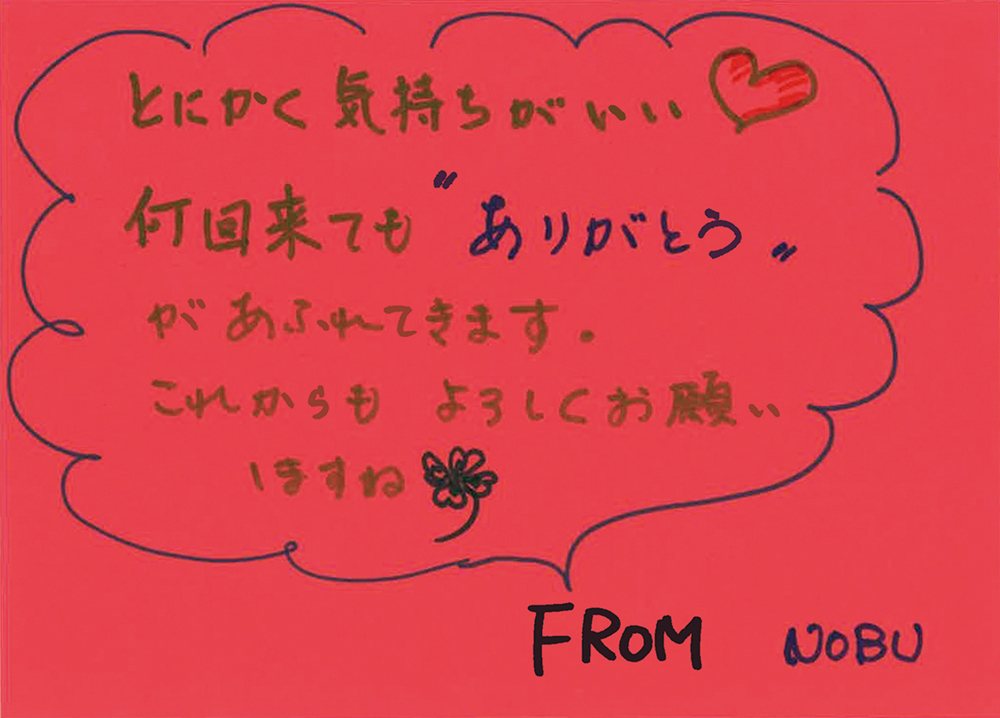 とにかく気持ちがいい
何回来ても〝ありがとう〟
があふれてきます。
これからも よろしくお願い
しますね
FROM NOBU